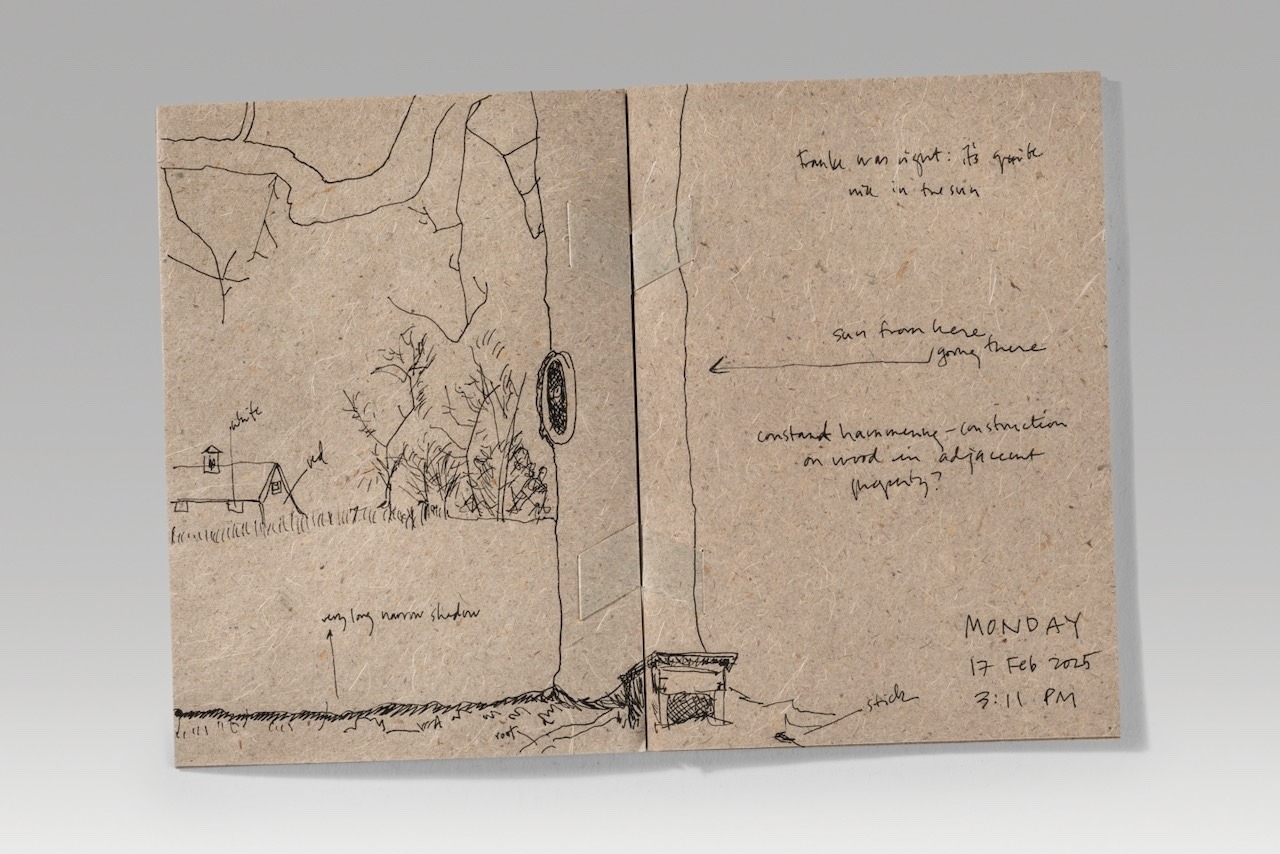 white
red
very long narrow shadow
root
Franke was right: it's quite
nice in the sun
sun from here
going there
constant hammering - construction
on wood in adjacent
property?
MONDAY
17 Feb 2025
3:11 PM
stick